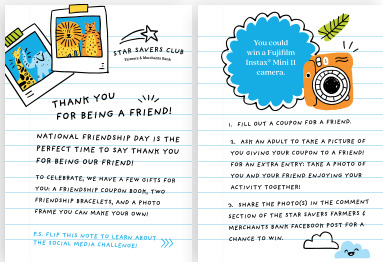 STAR SAVERS CLUB
Farmers & Merchants Bank
THANK YOU
FOR BEING A FRIEND!
NATIONAL FRIENDSHIP DAY IS THE
PERFECT TIME TO SAY THANK YOU
FOR BEING OUR FRIEND!
TO CELEBRATE, WE HAVE A FEW GIFTS FOR
YOU: A FRIENDSHIP COUPON BOOK, TWO
FRIENDSHIP BRACELETS, AND A PHOTO
FRAME YOU CAN MAKE YOUR OWN!
P.S. FLIP THIS NOTE TO LEARN ABOUT
THE SOCIAL MEDIA CHALLENGE!
You could
win a Fujifilm
Instax® Mini 11
camera.
1. FILL OUT A COUPON FOR A FRIEND.
2. ASK AN ADULT TO TAKE A PICTURE OF
YOU GIVING YOUR COUPON TO A FRIEND!
FOR AN EXTRA ENTRY: TAKE A PHOTO OF
YOU AND YOUR FRIEND ENJOYING YOUR
ACTIVITY TOGETHER!
3. SHARE THE PHOTO(S) IN THE COMMENT
SECTION OF THE STAR SAVERS FARMERS &
MERCHANTS BANK FACEBOOK POST FOR A
CHANCE TO WIN.